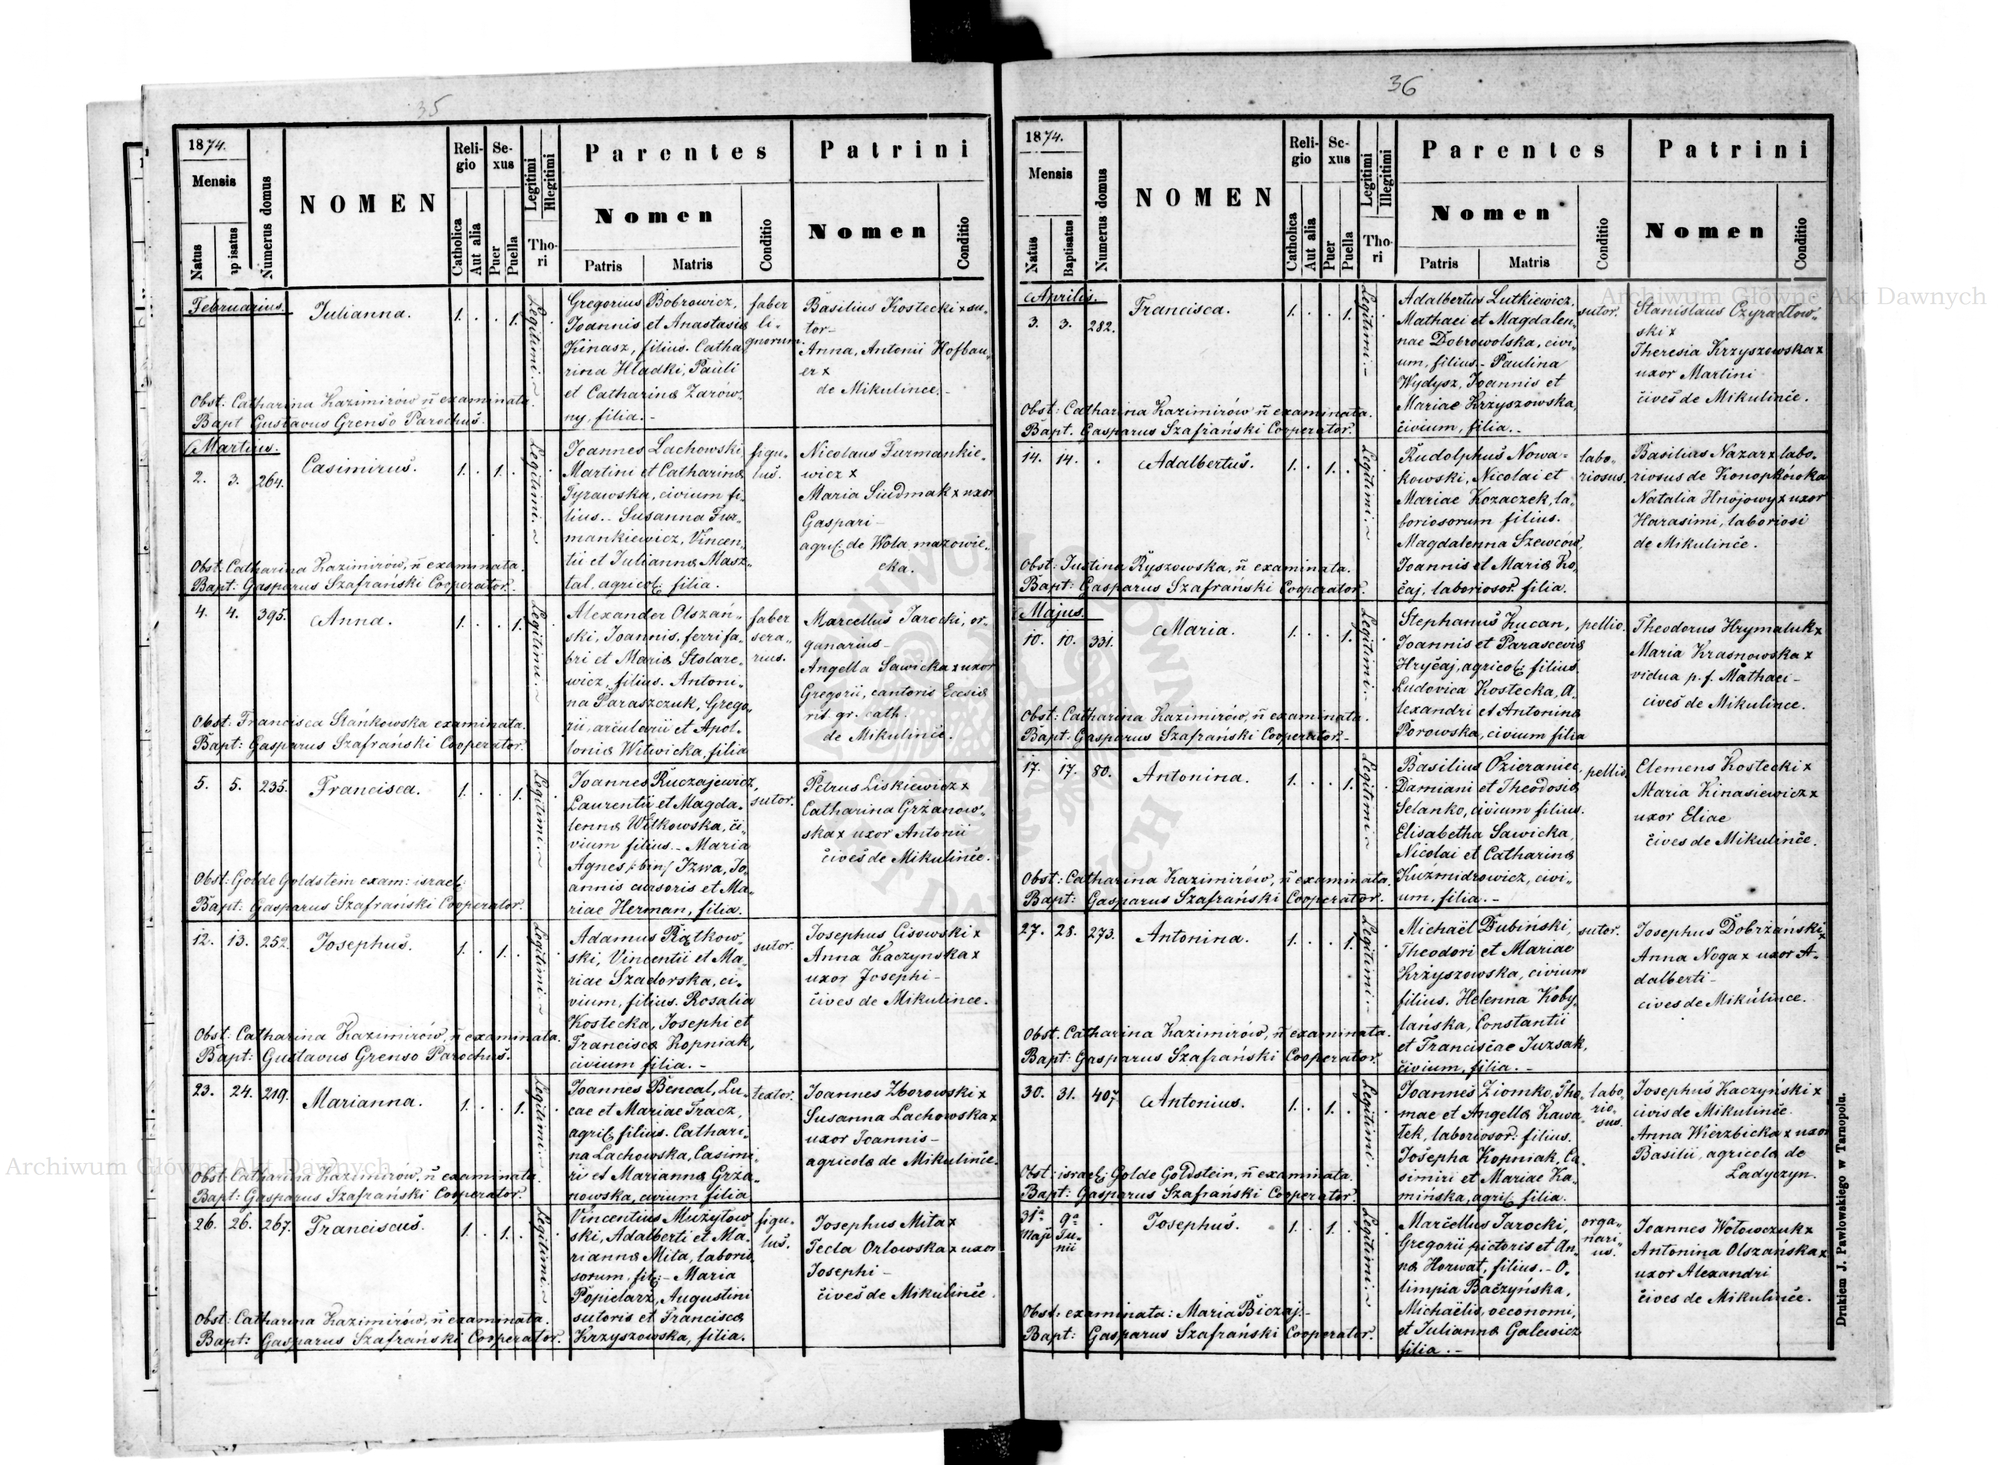 35
1874.
Mensis
Natus
Numerus domus
NOMEN
Religio
Catholica
Aut alia
Sexus
Puer
Puella
Legitimi
Illegitimi
Thori
Parentes
Nomen
Patris
Matris
Conditio
Patrini
Nomen
Conditio
Februarius.
Julianna.
1. . . 1.
Legitimi.
Gregorius Bobrowicz,
Joannis et Anastasiæ
Kinasz, filius. Catha
rina Hladki, Pauli
et Catharinæ Zarów-
ny, filia.-
faber
li-
gnorum.
Basilius Kostecki x su-
tor-
Anna, Antonii Hofbau-
er x
de Mikulince.
Obst: Catharina Kazimirów n̄ examinata.
Bapt Gustavus Grenso Parochus.
Martius.
2. 3. 264.
Casimirus.
1. . 1. .
Legitimi.
Joannes Lachowski
Martini et Catharinæ
Tyrawska, civium fi-
lius.- Susanna Fur-
mankiewicz, Vincen-
tii et Juliannæ Masz-
tal, agricol: filia.
figu-
lus.
Nicolaus Furmankie-
wicz x
Maria Siudmak x uxor
Gaspari-
agric: de Wola mazowie-
cka.
Obst: Catharina Kazimirów, n̄ examinata.
Bapt: Gasparus Szafrański Cooperator.
4. 4. 395.
Anna.
1. . . 1.
Legitimi.
Alexander Olszań-
ski, Joannis, ferri fa-
bri et Mariæ Stolare-
wicz, filius. Antoni-
na Paraszczuk, Grego-
rii, arcularii et Apol-
loniæ Witwicka, filia
faber
sera-
rius.
Marcellus Jarocki, or-
ganarius-
Angella Sawicka x uxor
Gregorii, cantoris Ecclsiæ
rit. gr. cath.
de Mikulince.
Obst: Francisca Stańkowska examinata.
Bapt: Gasparus Szafrański Cooperator.
5. 5. 235.
Francisca.
1. . . 1.
Legitimi.
Joannes Ruczajewicz,
Laurentii et Magda-
lennæ Witkowska, ci-
vium filius.- Maria
Agnes /: bin:/ Izwa, Jo-
annis cursoris et Ma-
riae Herman, filia.
sutor.
Petrus Liskiewicz x
Catharina Grzanow-
ska x uxor Antonii
cives de Mikulince.
Obst: Golde Goldstein exam: israel:
Bapt: Gasparus Szafrański Cooperator.
12. 13. 252.
Josephus.
1. . 1. .
Legitimi.
Adamus Rątkow-
ski, Vincentii et Ma-
riae Szadorska, ci-
vium, filius. Rosalia
Kostecka, Josephi et
Franciscæ Kopniak,
civium filia.-
sutor.
Josephus Cisowski x
Anna Kaczynska x
uxor Josephi-
cives de Mikulince.
Obst: Catharina Kazimirów, n̄ examinata.
Bapt: Gustavus Grenso Parochus.
23. 24. 219.
Marianna.
1. . . 1.
Legitimi.
Joannes Bencal, Lu-
cae et Mariae Tracz,
agric: filius. Cathari-
na Lachowska, Casimi-
ri et Mariannæ Grza-
nowska, civium filia
textor.
Joannes Zborowski x
Susanna Lachowska x
uxor Joannis-
agricolæ de Mikulince.
Obst: Catharina Kazimirów, n̄ examinata.
Bapt: Gasparus Szafrański Cooperator.
26. 26. 267.
Franciscus.
1. . 1. .
Legitimi.
Vincentius Mużytow
ski, Adalberti et Ma-
riannæ Mita, laborio
sorum, fil:- Maria
Popielarz, Augustini
sutoris et Franciscæ
Krzyszowska, filia.
figu-
lus.
Josephus Mita x
Tecla Orlowska x uxor
Josephi-
cives de Mikulince.
Obst: Catharina Kazimirów, n̄ examinata.
Bapt: Gasparus Szafrański Cooperator.
36
1874.
Mensis
Natus
Baptisatus
Numerus domus
NOMEN
Religio
Catholica
Aut alia
Sexus
Puer
Puella
Legitimi
Illegitimi
Thori
Parentes
Nomen
Patris
Matris
Conditio
Patrini
Nomen
Conditio
Aprilis.
3. 3. 282.
Francisca.
1. . . 1.
Legitimi.
Adalbertus Lutkiewicz,
Mathaei et Magdalen-
nae Dobrowolska, civi-
um, filius.- Paulina
Wydysz, Joannis et
Mariae Krzyszowska,
civium, filia.-
sutor.
Stanislaus Czyradtow-
ski x
Theresia Krzyszowska x
uxor Martini
cives de Mikulince.
Obst: Catharina Kazimirów n̄ examinata.
Bapt. Gasparus Szafrański Cooperator.
14. 14. .
Adalbertus.
1. . 1. .
Legitimi.
Rudolphus Nowa-
kowski, Nicolai et
Mariae Kozaczek, la-
boriosorum filius.
Magdalenna Szewcow,
Joannis et Mariæ Ko-
caj, laboriosor. filia.
labo-
riosus.
Basilius Nazar x labo-
riosus de Konopkówka
Natalia Hnojowy x uxor
Harasimi, laboriosi
de Mikulince.
Obst: Justina Ryszowska, n̄ examinata.
Bapt: Gasparus Szafrański Cooperator.
Majus.
10. 10. 331.
Maria.
1. . . 1.
Legitimi.
Stephanus Kucan,
Joannis et Parasceviæ
Hryćaj, agricol: filius.
Ludovica Kostecka, A-
lexandri et Antoninæ
Porowska, civium filia
pellio.
Theodorus Hrymaluk x
Maria Krasnowska x
vidua p. f. Mathaei-
cives de Mikulince.
Obst: Catharina Kazimirów, n̄ examinata.
Bapt. Gasparus Szafrański Cooperator.-
17. 17. 80.
Antonina.
1. . . 1.
Legitimi.
Basilius Ozieraniec,
Damiani et Theodosiæ
Selanko, civium filius.
Elisabetha Sawicka,
Nicolai et Catharinæ
Kuźmidrowicz, civi-
um, filia.-
pellio.
Clemens Kostecki x
Maria Kinasiewicz x
uxor Eliae
cives de Mikulince.
Obst: Catharina Kazimirów, n̄ examinata.
Bapt: Gasparus Szafrański Cooperator.
27. 28. 273.
Antonina.
1. . . 1.
Legitimi.
Michaël Dubiński,
Theodori et Mariae
Krzyszowska, civium
filius. Helenna Koby
lańska, Constantii
et Franciscae Juzsak,
civium, filia.-
sutor.
Josephus Dobrzański x
Anna Noga x uxor A-
dalberti-
cives de Mikulince.
Obst. Catharina Kazimirów, n̄ examinata.
Bapt: Gasparus Szafrański Cooperator.
30. 31. 407.
Antonius.
1. . 1. .
Legitimi.
Joannes Ziomko, Tho-
mae et Angellæ Kawa-
łek, laboriosor: filius.
Josepha Kopniak, Ca-
simiri et Mariae Ka-
mińska, agric: filia.
labo-
rio-
sus.
Josephus Kaczyński x
civis de Mikulince.
Anna Wierzbicka x uxor
Basilii, agricola de
Ladyczyn.
Obst: israel: Golde Goldstein, n̄ examinata.
Bapt: Gasparus Szafrański Cooperator.
31ª 9ª
Maji Ju-
nii
Josephus.
1. . 1. .
Legitimi.
Marcellus Jarocki,
Gregorii pictoris et An-
næ Horwat, filius.- O-
limpia Baczyńska,
Michaëlis, oeconomi,
et Juliannæ Galewicz
filia.-
orga-
nari-
us.
Joannes Wotowczuk x
Antonina Olszanska x
uxor Alexandri
cives de Mikulince.
Obst: examinata: Maria Biczaj.-
Bapt: Gasparus Szafrański Cooperator.
Drukiem J. Pawłowskiego w Tarnopolu.
Archiwum Główne Akt Dawnych
Archiwum Główne Akt Dawnych